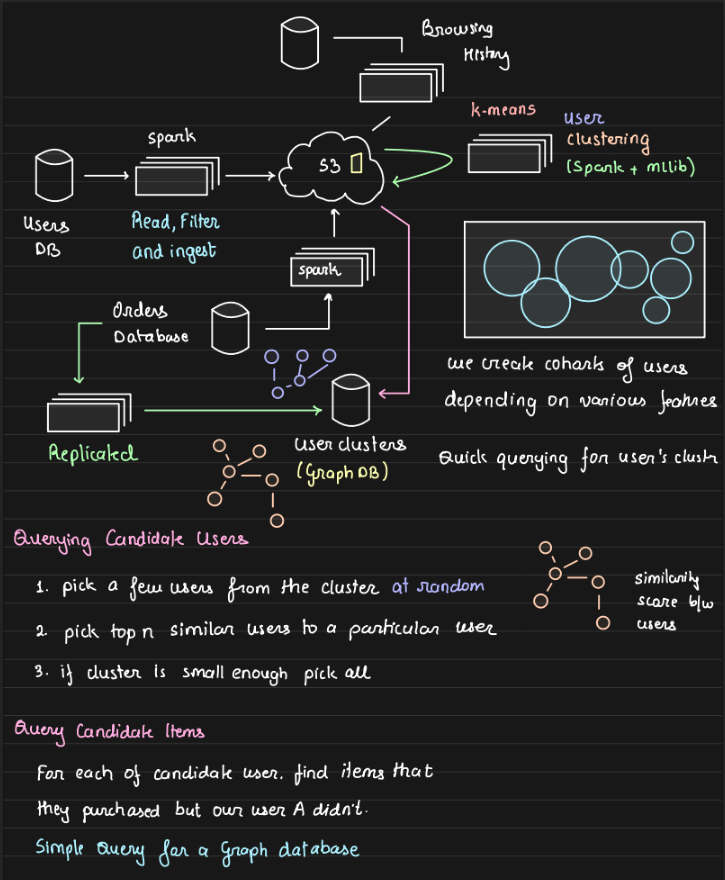 Browsing
History
k-means
user
clustering
(Spark + mllib)
spark
S3
Users
DB
Read, Filter
and ingest
spark
Orders
Database
we create cohorts of users
depending on various features
Replicated
user clusters
(Graph DB)
Quick querying for user's cluster
Querying Candidate Users
1. pick a few users from the cluster at random
2. pick top n similar users to a particular user
3. if cluster is small enough pick all
similarity
score b/w
users
Query Candidate Items
For each of candidate user. find items that
they purchased but our user A didn't.
Simple Query for a Graph database